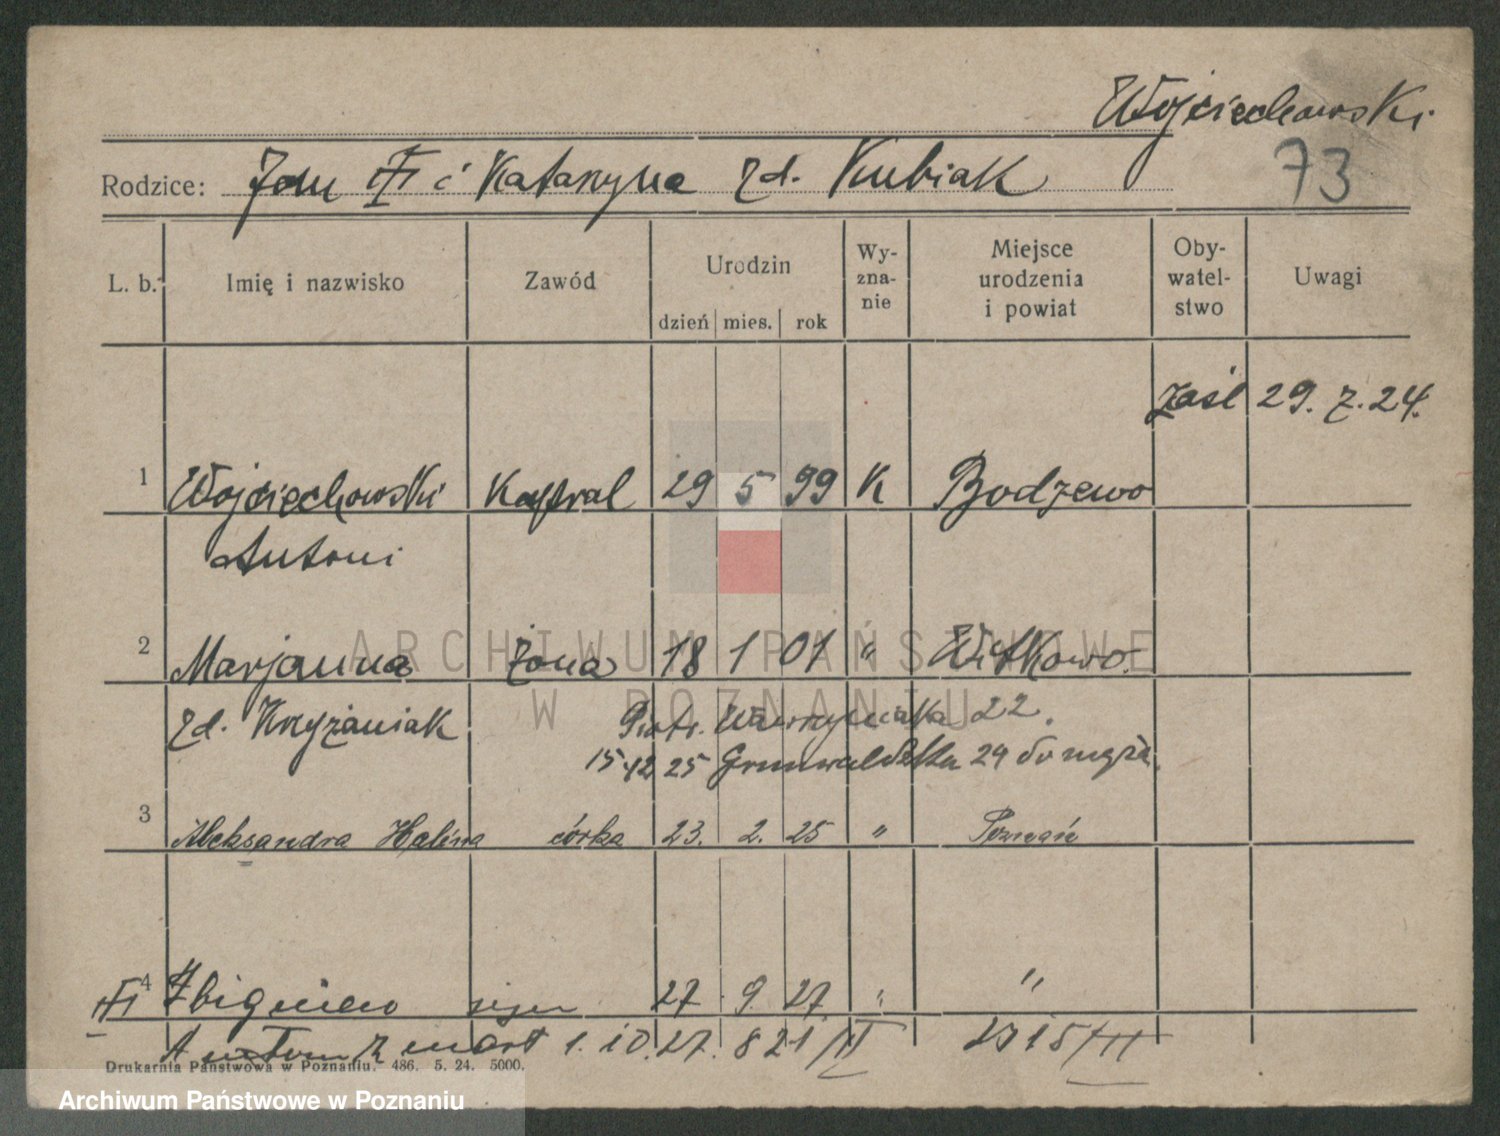 Wojciechowski
73
Rodzice: Jan i Katarzyna zd. Kubiak
L. b. Imię i nazwisko Zawód Urodzin Wy-zna-nie Miejsce urodzenia i powiat Oby-watel-stwo Uwagi
dzień mies. rok
zaśl 29. 7. 24.
1 Wojciechowski Kapral 29 5 99 K Bodzewo
Antoni
2 Marjanna żona 18 1 01 " Witkowo
zd. Krzyżaniak Piotr. Wawrzyniaka 22.
15 12 25 Grunwaldzka 24 do męża.
3 Aleksandra Halina córka 23. 2. 25 " Poznań
4 Zbigniew syn 27 9. 27 " "
Antoni zmarł 1. 10. 27. 821/II 2315/III
Drukarnia Państwowa w Poznaniu. 486. 5. 24. 5000.
ARCHIWUM PAŃSTWOWE
W POZNANIU
Archiwum Państwowe w Poznaniu